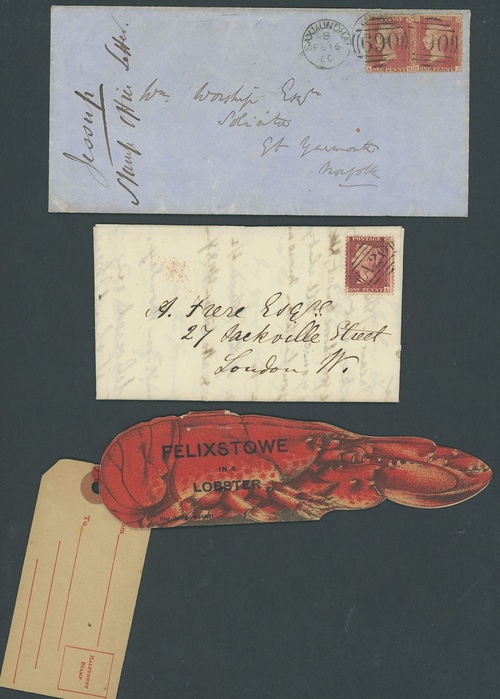 SAXMUNDHAM
B
FE 16
60
ONE PENNY
ONE PENNY
Jessup
Stamp Office Letter.
Wm. Worship Esqr
Solicitor
Gt Yarmouth
Norfolk
POSTAGE
ONE PENNY
A. Frere Esqre
27 Sackville Street
London W.
FELIXSTOWE
IN A
LOBSTER
To
HALFPENNY
STAMP.